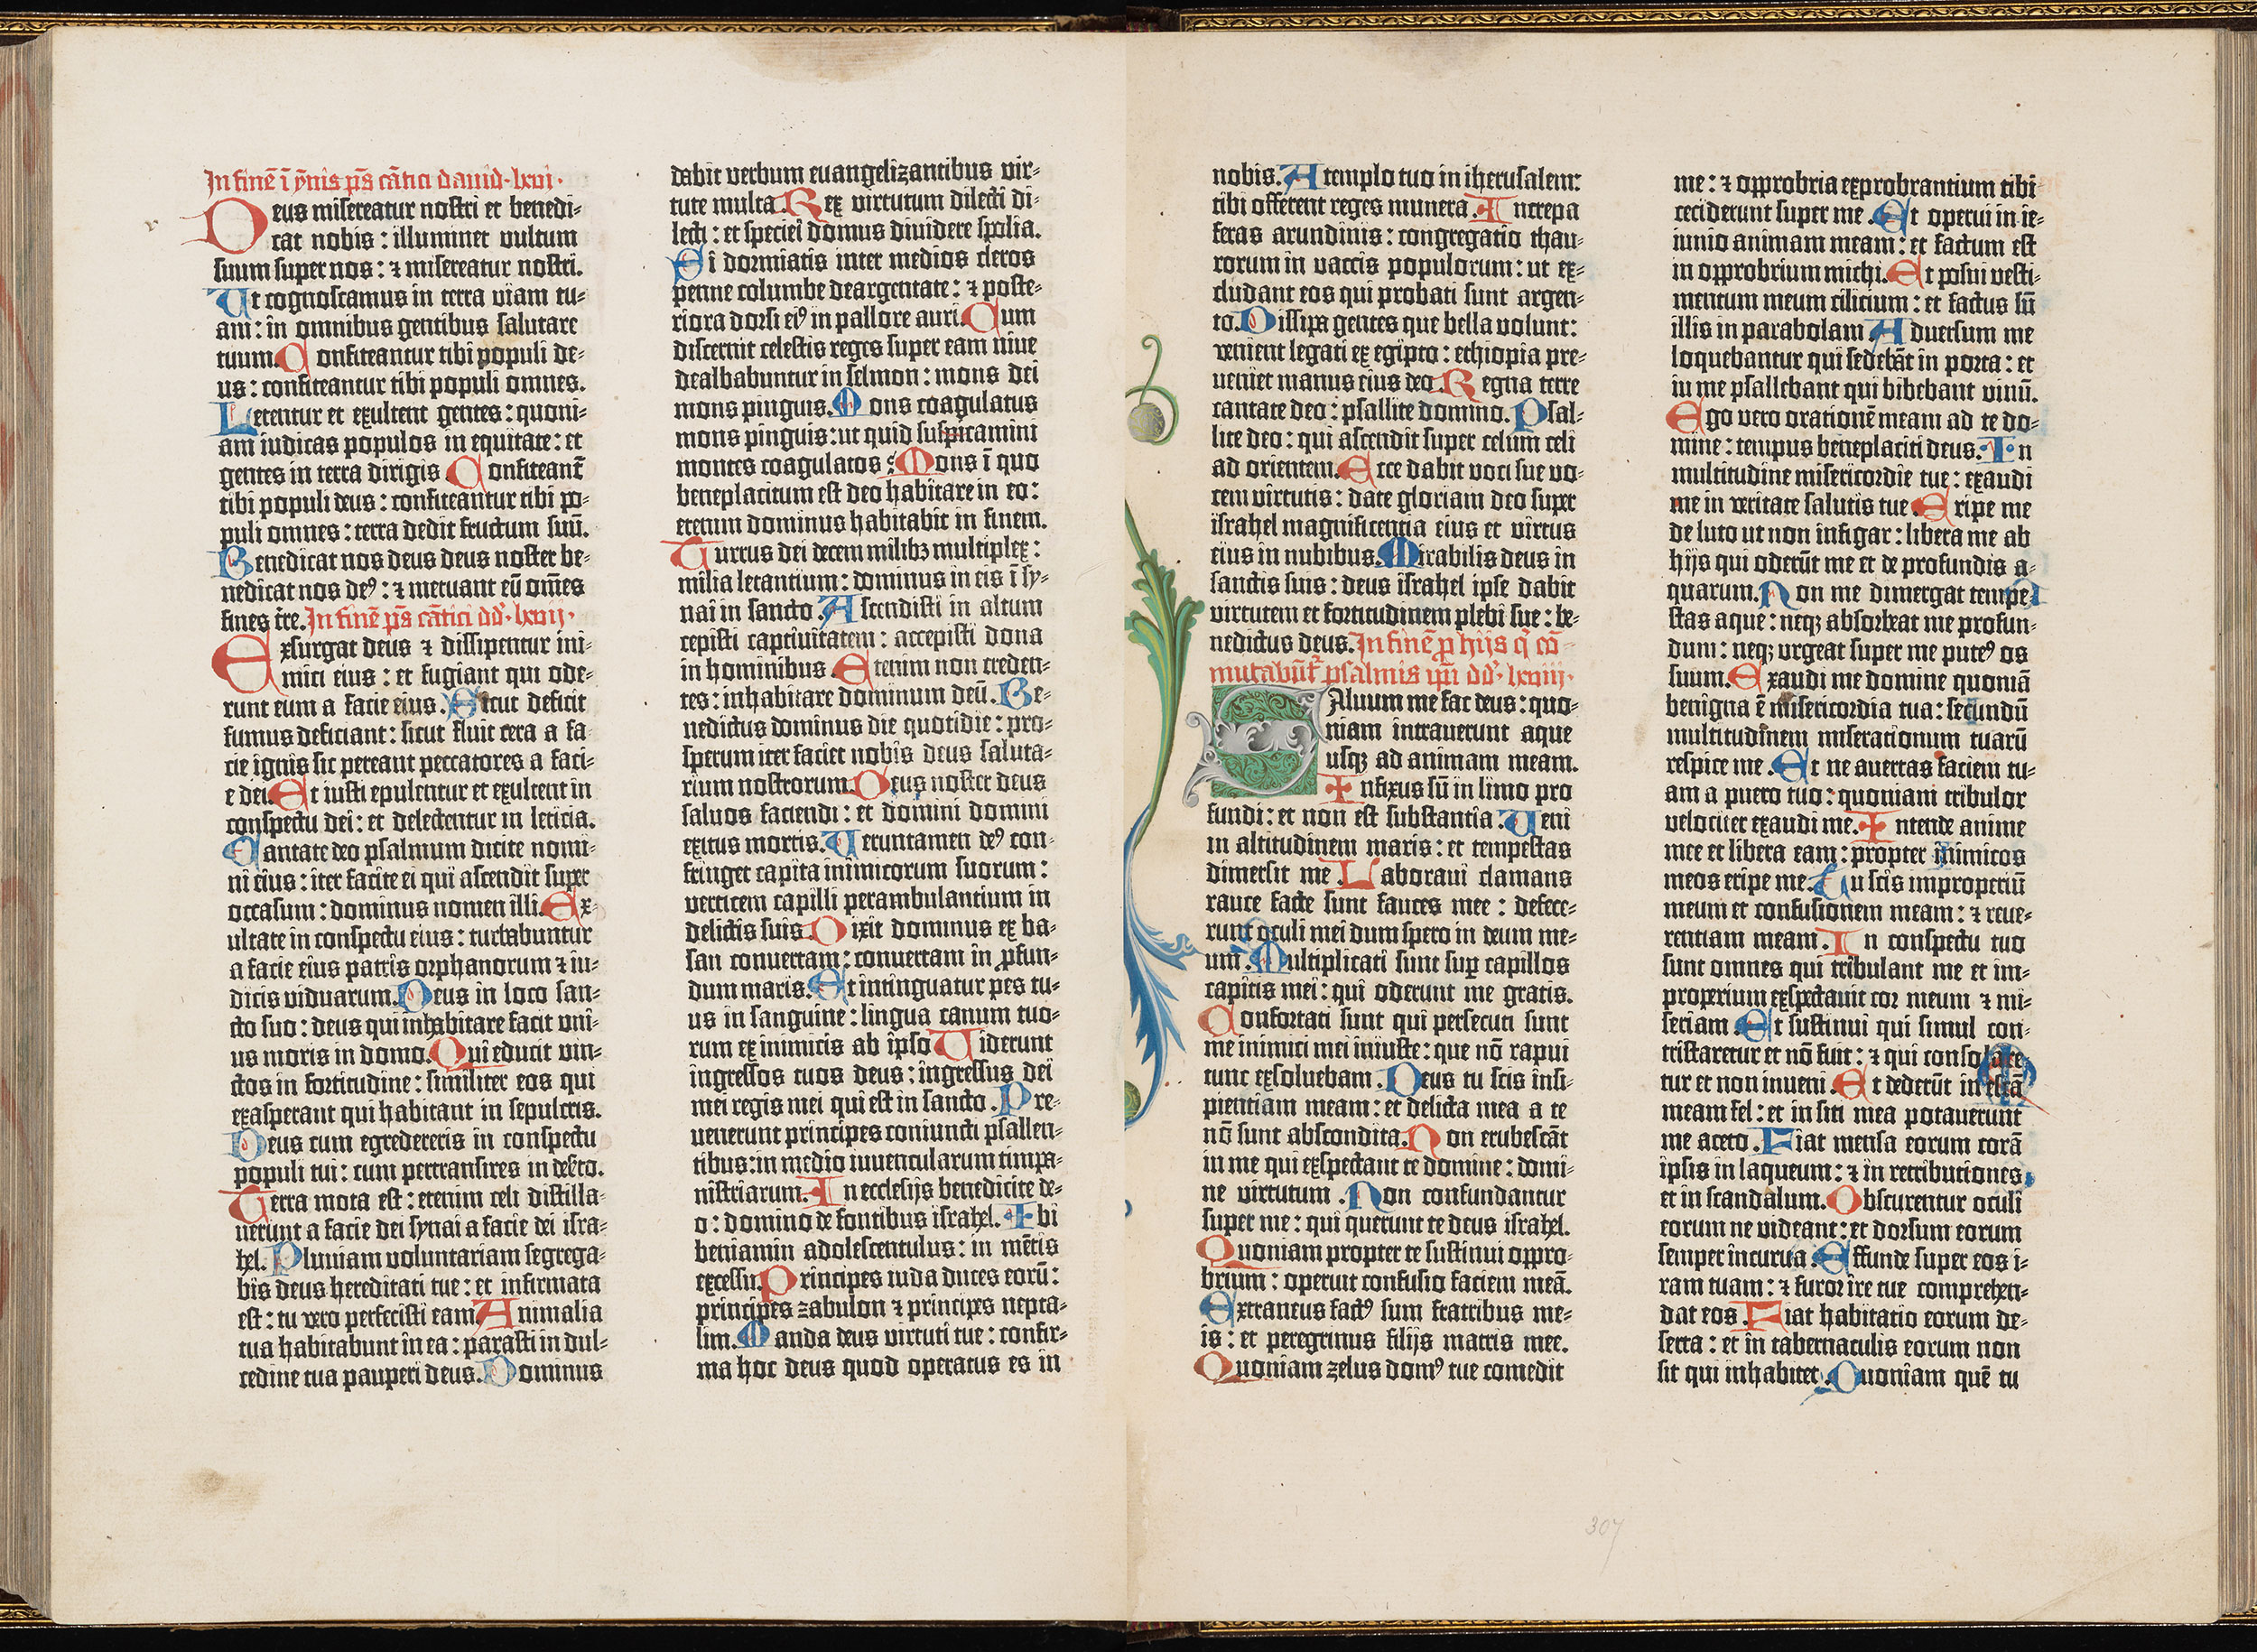 In finē ī ẏnis p̄s cātici dauid·lxvi·
Deus misereatur nostri et benedi-
cat nobis : illuminet vultum
suum super nos : ⁊ misereatur nostri.
Ut cognoscamus in terra viam tu-
am : in omnibus gentibus salutare
tuum. Confiteantur tibi populi de-
us : confiteantur tibi populi omnes.
Letentur et exultent gentes : quoni-
am iudicas populos in equitate : et
gentes in terra dirigis Confiteant̄
tibi populi deus : confiteantur tibi po-
puli omnes : terra dedit fructum suū.
Benedicat nos deus deus noster be-
nedicat nos deꝰ : ⁊ metuant eū om̄es
fines tr̄e. In finē p̄s cātici dd̾·lxvij·
Exsurgat deus ⁊ dissipentur ini-
mici eius : et fugiant qui ode-
runt eum a facie eius. Sicut deficit
fumus deficiant : sicut fluit cera a fa-
cie ignis sic pereant peccatores a faci-
e dei. Et iusti epulentur et exultent in
conspectu dei : et delectentur in leticia.
Cantate deo psalmum dicite nomi-
ni eius : iter facite ei qui ascendit super
occasum : dominus nomen illi. Ex-
ultate in conspectu eius : turbabuntur
a facie eius patris orphanorum ⁊ iu-
dicis viduarum. Deus in loco san-
cto suo : deus qui inhabitare facit vni-
us moris in domo. Qui educit vin-
ctos in fortitudine : similiter eos qui
exasperant qui habitant in sepulcris.
Deus cum egredereris in conspectu
populi tui : cum pertransires in deserto.
Terra mota est : etenim celi distilla-
uerunt a facie dei synai a facie dei isra-
hel. Pluuiam voluntariam segrega-
bis deus hereditati tue : et infirmata
est : tu vero perfecisti eam Animalia
tua habitabunt in ea : parasti in dul-
cedine tua pauperi deus. Dominus
dabit verbum euangelizantibus vir-
tute multa. Rex virtutum dilecti di-
lecti : et speciei domus diuidere spolia.
Si dormiatis inter medios cleros
penne columbe deargentate : ⁊ poste-
riora dorsi eiꝰ in pallore auri. Dum
discernit celestis reges super eam niue
dealbabuntur in selmon : mons dei
mons pinguis. Mons coagulatus
mons pinguis : ut quid suspicamini
montes coagulatos : Mons ī quo
beneplacitum est deo habitare in eo :
etenim dominus habitabit in finem.
Currus dei decem milibꝫ multiplex :
milia letantium : dominus in eis ī sy-
nai in sancto. Ascendisti in altum
cepisti captiuitatem : accepisti dona
in hominibus. Etenim non creden-
tes : inhabitare dominum deū. Be-
nedictus dominus die quotidie : pro-
sperum iter faciet nobis deus saluta-
rium nostrorum. Deus noster deus
saluos faciendi : et domini domini
exitus mortis. Ueruntamen deꝰ con-
fringet capita inimicorum suorum :
verticem capilli perambulantium in
delictis suis. Dixit dominus ex ba-
san conuertam : conuertam in ꝓfun-
dum maris. Et intinguatur pes tu-
us in sanguine : lingua canum tuo-
rum ex inimicis ab ipso Uiderunt
ingressos tuos deus : ingressus dei
mei regis mei qui est in sancto. Pre-
uenerunt principes coniuncti psallen-
tibus : in medio iuuencularum timpa-
nistriarum. In ecclesijs benedicite de-
o : domino de fontibus israhel. Ibi
beniamin adolescentulus : in mētis
excessu. Principes iuda duces eorū :
principes zabulon ⁊ principes nepta-
lim. Manda deus virtuti tue : confir-
ma hoc deus quod operatus es in
nobis. A templo tuo in iherusalem :
tibi offerent reges munera. Increpa
feras arundinis : congregatio thau-
rorum in vaccis populorum : ut ex-
cludant eos qui probati sunt argen-
to. Dissipa gentes que bella volunt :
venient legati ex egipto : ethiopia pre-
ueniet manus eius deo. Regna terre
cantate deo : psallite domino. Psal-
lite deo : qui ascendit super celum celi
ad orientem. Ecce dabit voci sue vo-
cem virtutis : date gloriam deo super
israhel magnificentia eius et virtus
eius in nubibus. Mirabilis deus in
sanctis suis : deus israhel ipse dabit
virtutem et fortitudinem plebi sue : be-
nedictus deus. In finē ꝓ hijs q̇ cō-
mutabūt̾ psalmis ip̄i dd̾·lxviij·
Saluum me fac deus : quo-
niam intrauerunt aque
usqꝫ ad animam meam.
Infixus sū in limo pro
fundi : et non est substantia. Ueni
in altitudinem maris : et tempestas
dimersit me. Laboraui clamans
rauce facte sunt fauces mee : defece-
runt oculi mei dum spero in deum me-
um. Multiplicati sunt suꝑ capillos
capitis mei : qui oderunt me gratis.
Confortati sunt qui persecuti sunt
me inimici mei iniuste : que nō rapui
tunc exsoluebam. Deus tu scis insi-
pientiam meam : et delicta mea a te
nō sunt abscondita. Non erubescāt
in me qui exspectant te domine : domi-
ne virtutum. Non confundantur
super me : qui querunt te deus israhel.
Quoniam propter te sustinui oppro-
brium : operuit confusio faciem meā.
Extraneus factꝰ sum fratribus me-
is : et peregrinus filijs matris mee.
Quoniam zelus domꝰ tue comedit
me : ⁊ opprobria exprobrantium tibi
ceciderunt super me. Et operui in ie-
iunio animam meam : et factum est
in opprobrium michi. Et posui vesti-
mentum meum cilicium : et factus sū
illis in parabolam Aduersum me
loquebantur qui sedebāt in porta : et
in me psallebant qui bibebant vinū.
Ego vero orationē meam ad te do-
mine : tempus beneplaciti deus. In
multitudine misericordie tue : exaudi
me in veritate salutis tue. Eripe me
de luto ut non infigar : libera me ab
hijs qui oderūt me et de profundis a-
quarum. Non me dimergat tempe-
stas aque : neqꝫ absorbeat me profun-
dum : neqꝫ urgeat super me puteꝰ os
suum. Exaudi me domine quoniā
benigna ē misericordia tua : secundū
multitudinem miserationum tuarū
respice me. Et ne auertas faciem tu-
am a puero tuo : quoniam tribulor
velociter exaudi me. Intende anime
mee et libera eam : propter inimicos
meos eripe me. Tu scis improperiū
meum et confusionem meam : ⁊ reue-
rentiam meam. In conspectu tuo
sunt omnes qui tribulant me et im-
properium exspectauit cor meum ⁊ mi-
seriam Et sustinui qui simul con-
tristaretur et nō fuit : ⁊ qui consolare-
tur et non inueni. Et dederūt in escā
meam fel : et in siti mea potauerunt
me aceto. Fiat mensa eorum corā
ipsis in laqueum : ⁊ in retributiones
et in scandalum. Obscurentur oculi
eorum ne videant : et dorsum eorum
semper incurua. Effunde super eos i-
ram tuam : ⁊ furor ire tue comprehen-
dat eos. Fiat habitatio eorum de-
serta : et in tabernaculis eorum non
sit qui inhabitet. Quoniam quē tu
307